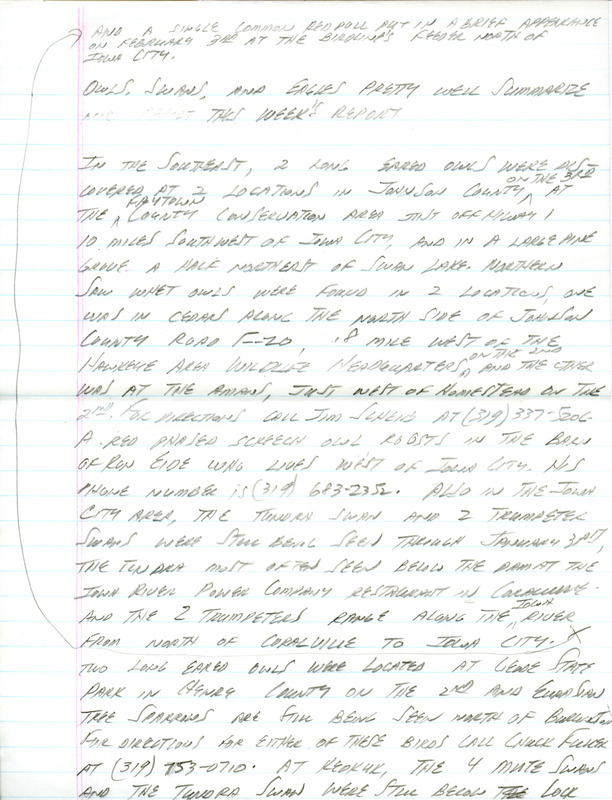 AND A SINGLE COMMON REDPOLL PUT IN A BRIEF APPEARANCE
ON FEBRUARY 3RD AT THE BIRDLINE'S FEEDER NORTH OF
IOWA CITY.
OWLS, SWANS, AND EAGLES PRETTY WELL SUMMARIZE
THIS WEEK'S REPORT
IN THE SOUTHEAST, 2 LONG EARED OWLS WERE DIS-
COVERED AT 2 LOCATIONS IN JOHNSON COUNTY ON THE 3RD, AT
THE COUNTY CONSERVATION AREA JUST OFF HIWAY 1
10 MILES SOUTHWEST OF IOWA CITY, AND IN A LARGE PINE
GROVE A HALF NORTHEAST OF SWAN LAKE. NORTHERN
SAW WHET OWLS WERE FOUND IN 2 LOCATIONS, ONE
WAS IN CEDARS ALONG THE NORTH SIDE OF JOHNSON
COUNTY ROAD F-20, MILE WEST OF THE
HAWKEYE AREA WILDLIFE HEADQUARTERS ON THE 2ND AND THE OTHER
WAS AT THE AMANAS, JUST WEST OF HOMESTEAD ON THE
2ND. FOR DIRECTIONS CALL JIM SCHEIB AT (319) 337-5206
A RED PHASED SCREECH OWL ROOSTS IN THE BARN
OF RON EIDE WHO LIVES WEST OF IOWA CITY. HIS
PHONE NUMBER IS (319) 683-2352. ALSO IN THE IOWA
CITY AREA, THE TUNDRA SWAN AND 2 TRUMPETER
SWANS WERE STILL BEING SEEN THROUGH JANUARY 31ST,
THE TUNDRA MOST OFTEN SEEN BELOW THE DAM AT THE
IOWA RIVER POWER COMPANY RESTAURANT IN CORALVILLE.
AND THE 2 TRUMPETERS RANGE ALONG THE IOWA RIVER
FROM NORTH OF CORALVILLE TO IOWA CITY. X
TWO LONG EARED OWLS WERE LOCATED AT GEODE STATE
PARK IN HENRY COUNTY ON THE 2ND AND EURASIAN
TREE SPARROWS ARE STILL BEING SEEN NORTH OF BURLINGTON
FOR DIRECTIONS FOR EITHER OF THESE BIRDS CALL CHUCK FULLER
AT (319) 753-0710. AT KEOKUK, THE 4 MUTE SWANS
AND THE TUNDRA SWAN WERE STILL BELOW THE LOCK